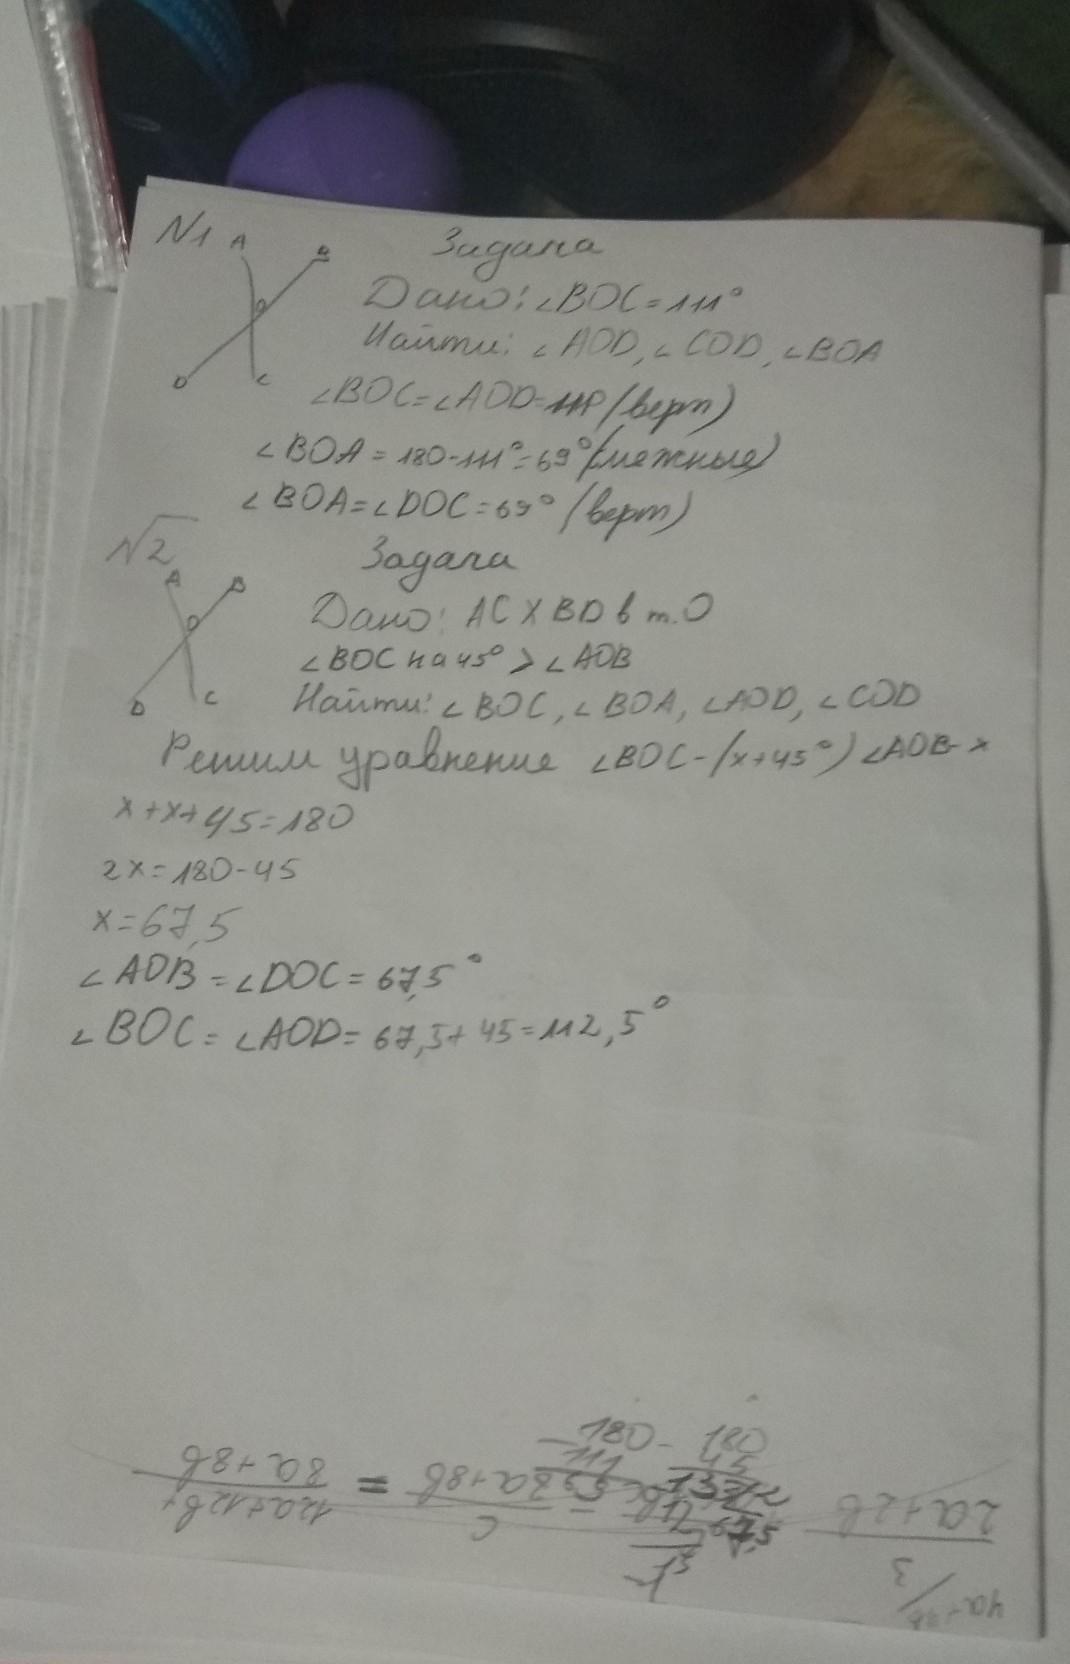 N1
A
B
O
D
C
Задача
Дано: ∠BOC = 111°
Найти: ∠AOD, ∠COD, ∠BOA
∠BOC = ∠AOD = 111° (верт)
∠BOA = 180 - 111° = 69° (смежные)
∠BOA = ∠DOC = 69° (верт)
N2
A
B
O
D
C
Задача
Дано: AC X BD в т. O
∠BOC на 45° > ∠AOB
Найти: ∠BOC, ∠BOA, ∠AOD, ∠COD
Решим уравнение ∠BOC - (x + 45°) ∠AOB - x
x + x + 45 = 180
2x = 180 - 45
x = 67,5
∠AOB = ∠DOC = 67,5°
∠BOC = ∠AOD = 67,5 + 45 = 112,5°
- 180
111
- 180
45
67,5
2a+2b
3
8a+8b
=
12a+12b
8a+8b